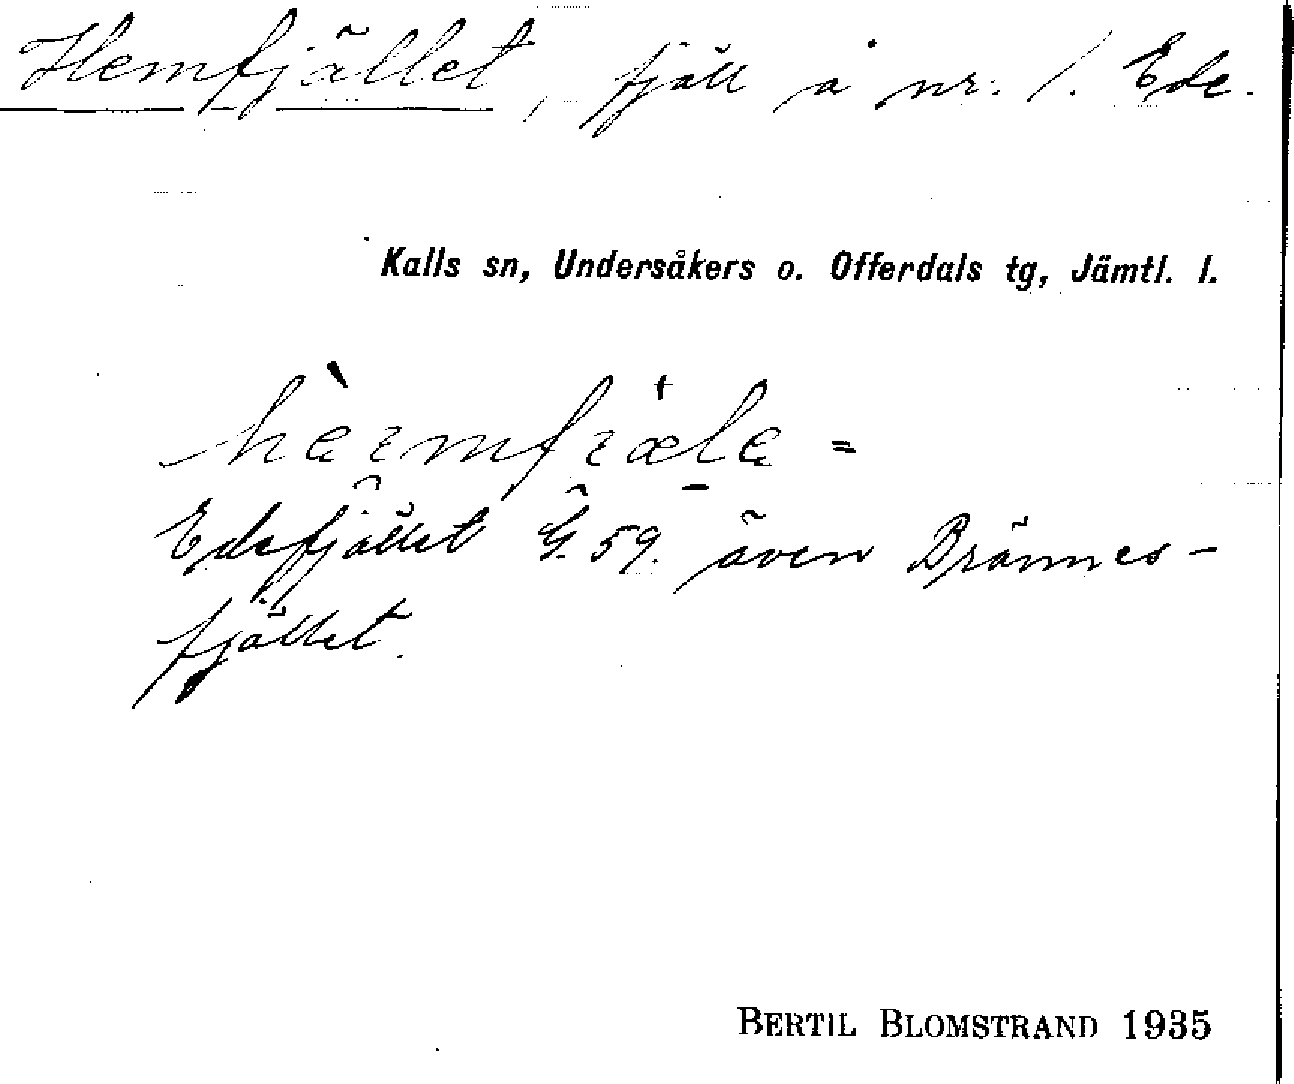 Hemfjället, fjäll å nr. 1. Ede.
Kalls sn, Undersåkers o. Offerdals tg, Jämtl. l.
Edefjället G. 59. även Brännes-
fjället.
BERTIL BLOMSTRAND 1935